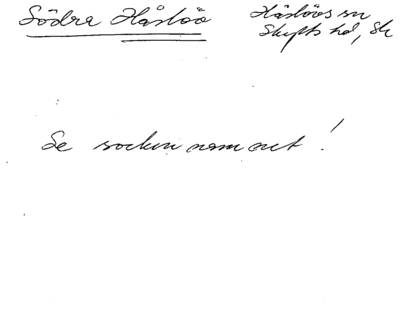 Södra Håslöv
Håslövs sn
Skytts hd, Sk
Se sockennamnet!